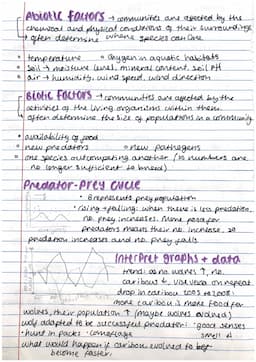 Abiotic factors → communities are affected by the
chemical and physical conditions of their surroundings
→ often determine where species can live
• temperature • oxygen in aquatic habitats
• soil → moisture level, mineral content, soil pH
• air → humidity, wind speed, wind direction
Biotic factors → communities are affected by the
activities of the living organisms within them.
often determine the size of populations in a community
• availability of food
• new predators • new pathogens
• one species outcompeting another (so numbers are
no longer sufficient to breed)
Predator-Prey cycle
• represents prey population
• rising + falling: when there is less predation,
no. prey increases. More food for
predators means their no. increase, so
predation increases and no. prey falls.
Interpret graphs + data
trend: as no. wolves ↑, no.
caribou ↓, vice versa on repeat
drop in caribou
more caribou is more food for
wolves, their population ↑ (maybe wolves evolved)
wolf adapted to be successful predator: • good senses
• hunt in packs • camouflage smell
what would happen if caribou evolved to
become faster.